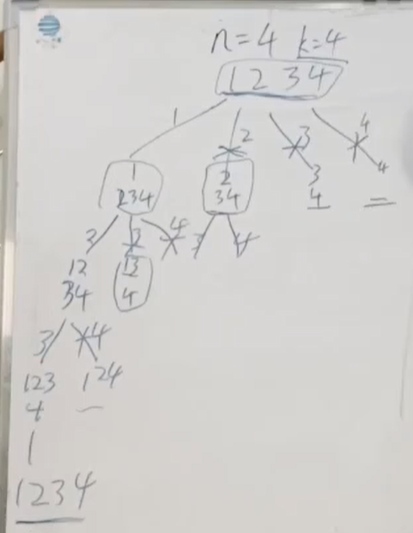 n=4 k=4
1 2 3 4
1 2 3 4
1 2 3 4
234 34 4
3 4
12 13
34 4
3 4
123 124
4
1234